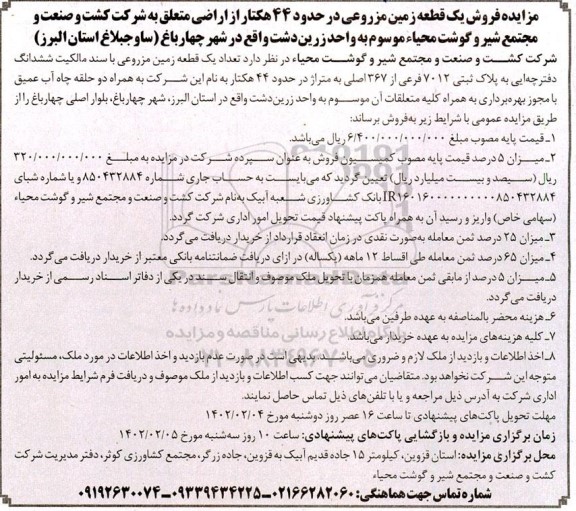 مزایده فروش یک قطعه زمین مزروعی در حدود ۴۴ هکتار از اراضی متعلق به شرکت کشت و صنعت و
مجتمع شیر و گوشت محیاء موسوم به واحد زرین‌دشت واقع در شهر چهارباغ (ساوجبلاغ استان البرز)
شرکت کشت و صنعت و مجتمع شیر و گوشت محیاء در نظر دارد تعداد یک قطعه زمین مزروعی با سند مالکیت ششدانگ
دفترچه‌ایی به پلاک ثبتی ۷۰۱۲ فرعی از ۳۶۷ اصلی به متراژ در حدود ۴۴ هکتار به نام این شرکت به همراه دو حلقه چاه آب عمیق
با مجوز بهره‌برداری به همراه کلیه متعلقات آن موسوم به واحد زرین‌دشت واقع در استان البرز، شهر چهارباغ، بلوار اصلی چهارباغ را از
طریق مزایده عمومی با شرایط زیر به‌فروش برساند:
۱ـ قیمت پایه مصوب مبلغ ۶/۴۰۰/۰۰۰/۰۰۰/۰۰۰ ریال می‌باشد.
۲ـ میزان ۵ درصد قیمت پایه مصوب کمیسیون فروش به عنوان سپرده شرکت در مزایده به مبلغ ۳۲۰/۰۰۰/۰۰۰/۰۰۰
ریال (سیصد و بیست میلیارد ریال) تعیین گردید که می‌بایست به حساب جاری شماره ۸۵۰۴۳۲۸۸۴ و یا شماره شبای
بانک کشاورزی شعبه آبیک به‌نام شرکت کشت و صنعت و مجتمع شیر و گوشت محیاء
(سهامی خاص) واریز و رسید آن به همراه پاکت پیشنهاد قیمت تحویل امور اداری شرکت گردد.
۳ـ میزان ۲۵ درصد ثمن معامله به‌صورت نقدی در زمان انعقاد قرارداد از خریدار دریافت می‌گردد.
۴ـ میزان ۶۵ درصد ثمن معامله طی اقساط ۱۲ ماهه (یکساله) در ازای دریافت ضمانتنامه بانکی معتبر از خریدار دریافت می‌گردد.
۵ـ میزان ۵ درصد از مابقی ثمن معامله همزمان با تحویل ملک موصوف و انتقال سند در یکی از دفاتر اسناد رسمی از خریدار
دریافت می‌گردد.
۶ـ هزینه محضر بالمناصفه به عهده طرفین می‌باشد.
۷ـ کلیه هزینه‌های مزایده به عهده خریدار می‌باشد.
۸ـ اخذ اطلاعات و بازدید از ملک لازم و ضروری می‌باشد. بدیهی است در صورت عدم بازدید و اخذ اطلاعات در مورد ملک، مسئولیتی
متوجه این شرکت نخواهد بود. متقاضیان می‌توانند جهت کسب اطلاعات و بازدید از ملک موصوف و دریافت فرم شرایط مزایده به امور
اداری شرکت به آدرس ذیل مراجعه و یا با تلفن‌های ذیل تماس حاصل نمایند.
مهلت تحویل پاکت‌های پیشنهادی تا ساعت ۱۶ عصر روز دوشنبه مورخ ۱۴۰۲/۰۲/۰۴
زمان برگزاری مزایده و بازگشایی پاکت‌های پیشنهادی: ساعت ۱۰ روز سه‌شنبه مورخ ۱۴۰۲/۰۲/۰۵
محل برگزاری مزایده: استان قزوین، کیلومتر ۱۵ جاده قدیم آبیک به قزوین، جاده زرگر، مجتمع کشاورزی کوثر، دفتر مدیریت شرکت
کشت و صنعت و مجتمع شیر و گوشت محیاء
شماره تماس جهت هماهنگی: ۰۲۱۶۶۲۸۲۰۶۰ـ۰۹۳۳۹۴۳۴۲۲۵ـ۰۹۱۹۲۶۳۰۰۷۴